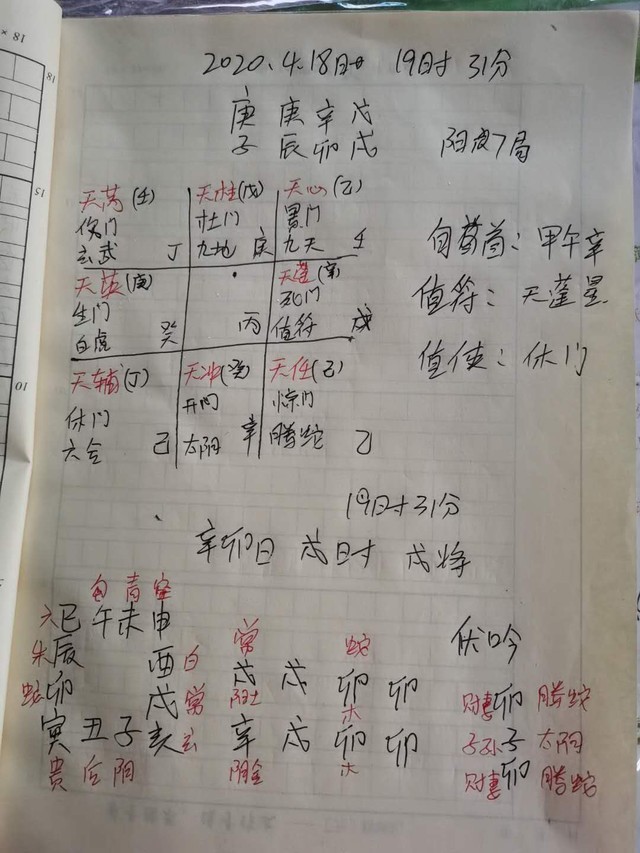 2020.4.18日 19时31分
庚 庚 辛 戊
子 辰 卯 戌 阳局7局
天芮(壬) 天柱(戊) 天心(乙)
伤门 杜门 景门
玄武 丁 九地 庚 九天 壬
旬首：甲午辛
天英(庚) 天蓬(辛)
生门 死门
白虎 癸 丙 值符 戊
值符：天蓬星
值使：休门
天辅(丁) 天冲(癸) 天任(己)
休门 开门 惊门
六合 己 太阴 辛 腾蛇 乙
19时31分
辛卯日 戊时 戌将
白 青 空
六 巳 午 未 申
朱 辰 酉 白 常 蛇 伏吟
蛇 卯 戌 常 戌 戌 卯 卯 财妻 卯 腾蛇
阳土 木
寅 丑 子 亥 玄 辛 戌 卯 卯 子孙 子 太阴
贵 后 阴 阴金 木 财妻 卯 腾蛇
18
15
10